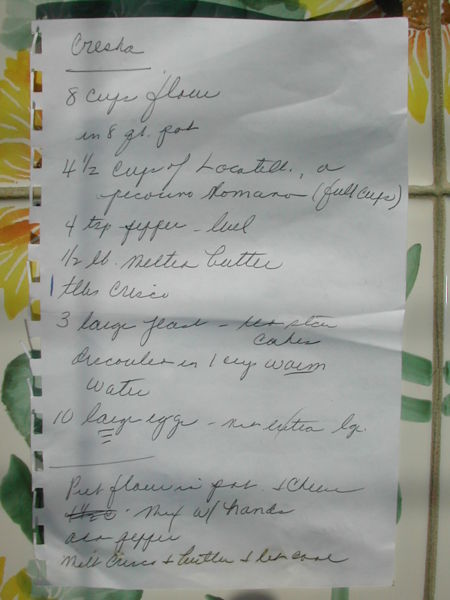 Cresha
8 cups flour
in 8 qt. pot
4 1/2 cups of Locatelli, a
pecorino Romano (full cups)
4 tsp pepper - level
1/2 lb. melted butter
1 tbls Crisco
3 large yeast - 
cakes
Dissolve in 1 cup warm
water
10 large eggs - not extra lg.
Put flour in pot. + cheese
mix w/ hands
add pepper
Melt Crisco + butter + let cool